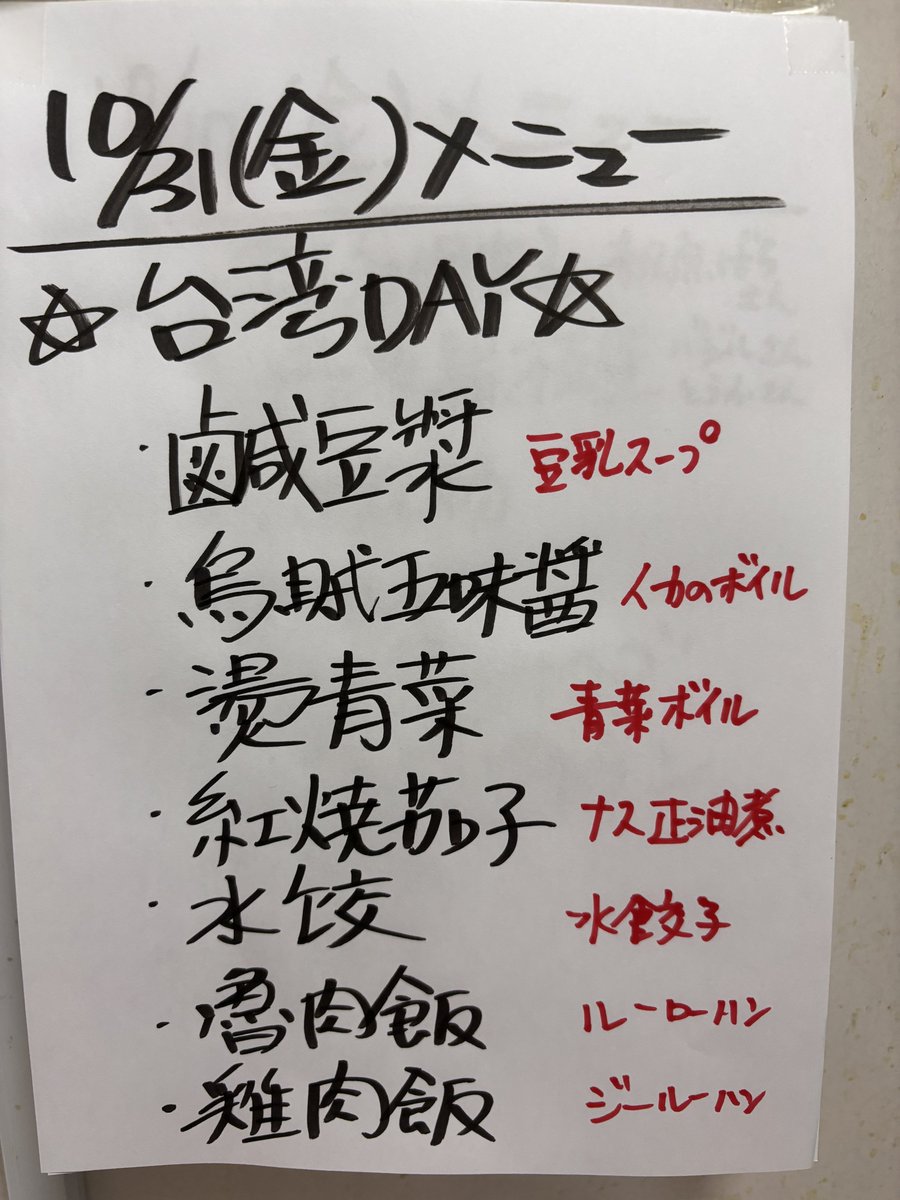 10/31(金)メニュー
☆台湾DAY☆
・鹹豆漿 豆乳スープ
・烏賊五味醤 イカのボイル
・燙青菜 青菜ボイル
・紅焼茄子 ナス正油煮
・水餃 水餃子
・魯肉飯 ルーローハン
・雞肉飯 ジールーハン